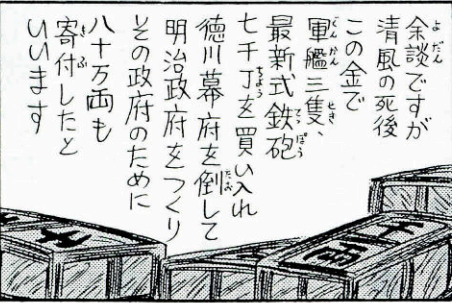 余談ですが
清風の死後
この金で
軍艦三隻、
最新式鉄砲
七千丁を買い入れ
徳川幕府を倒して
明治政府をつくり
その政府のために
八十万両も
寄付したと
いいます
千両